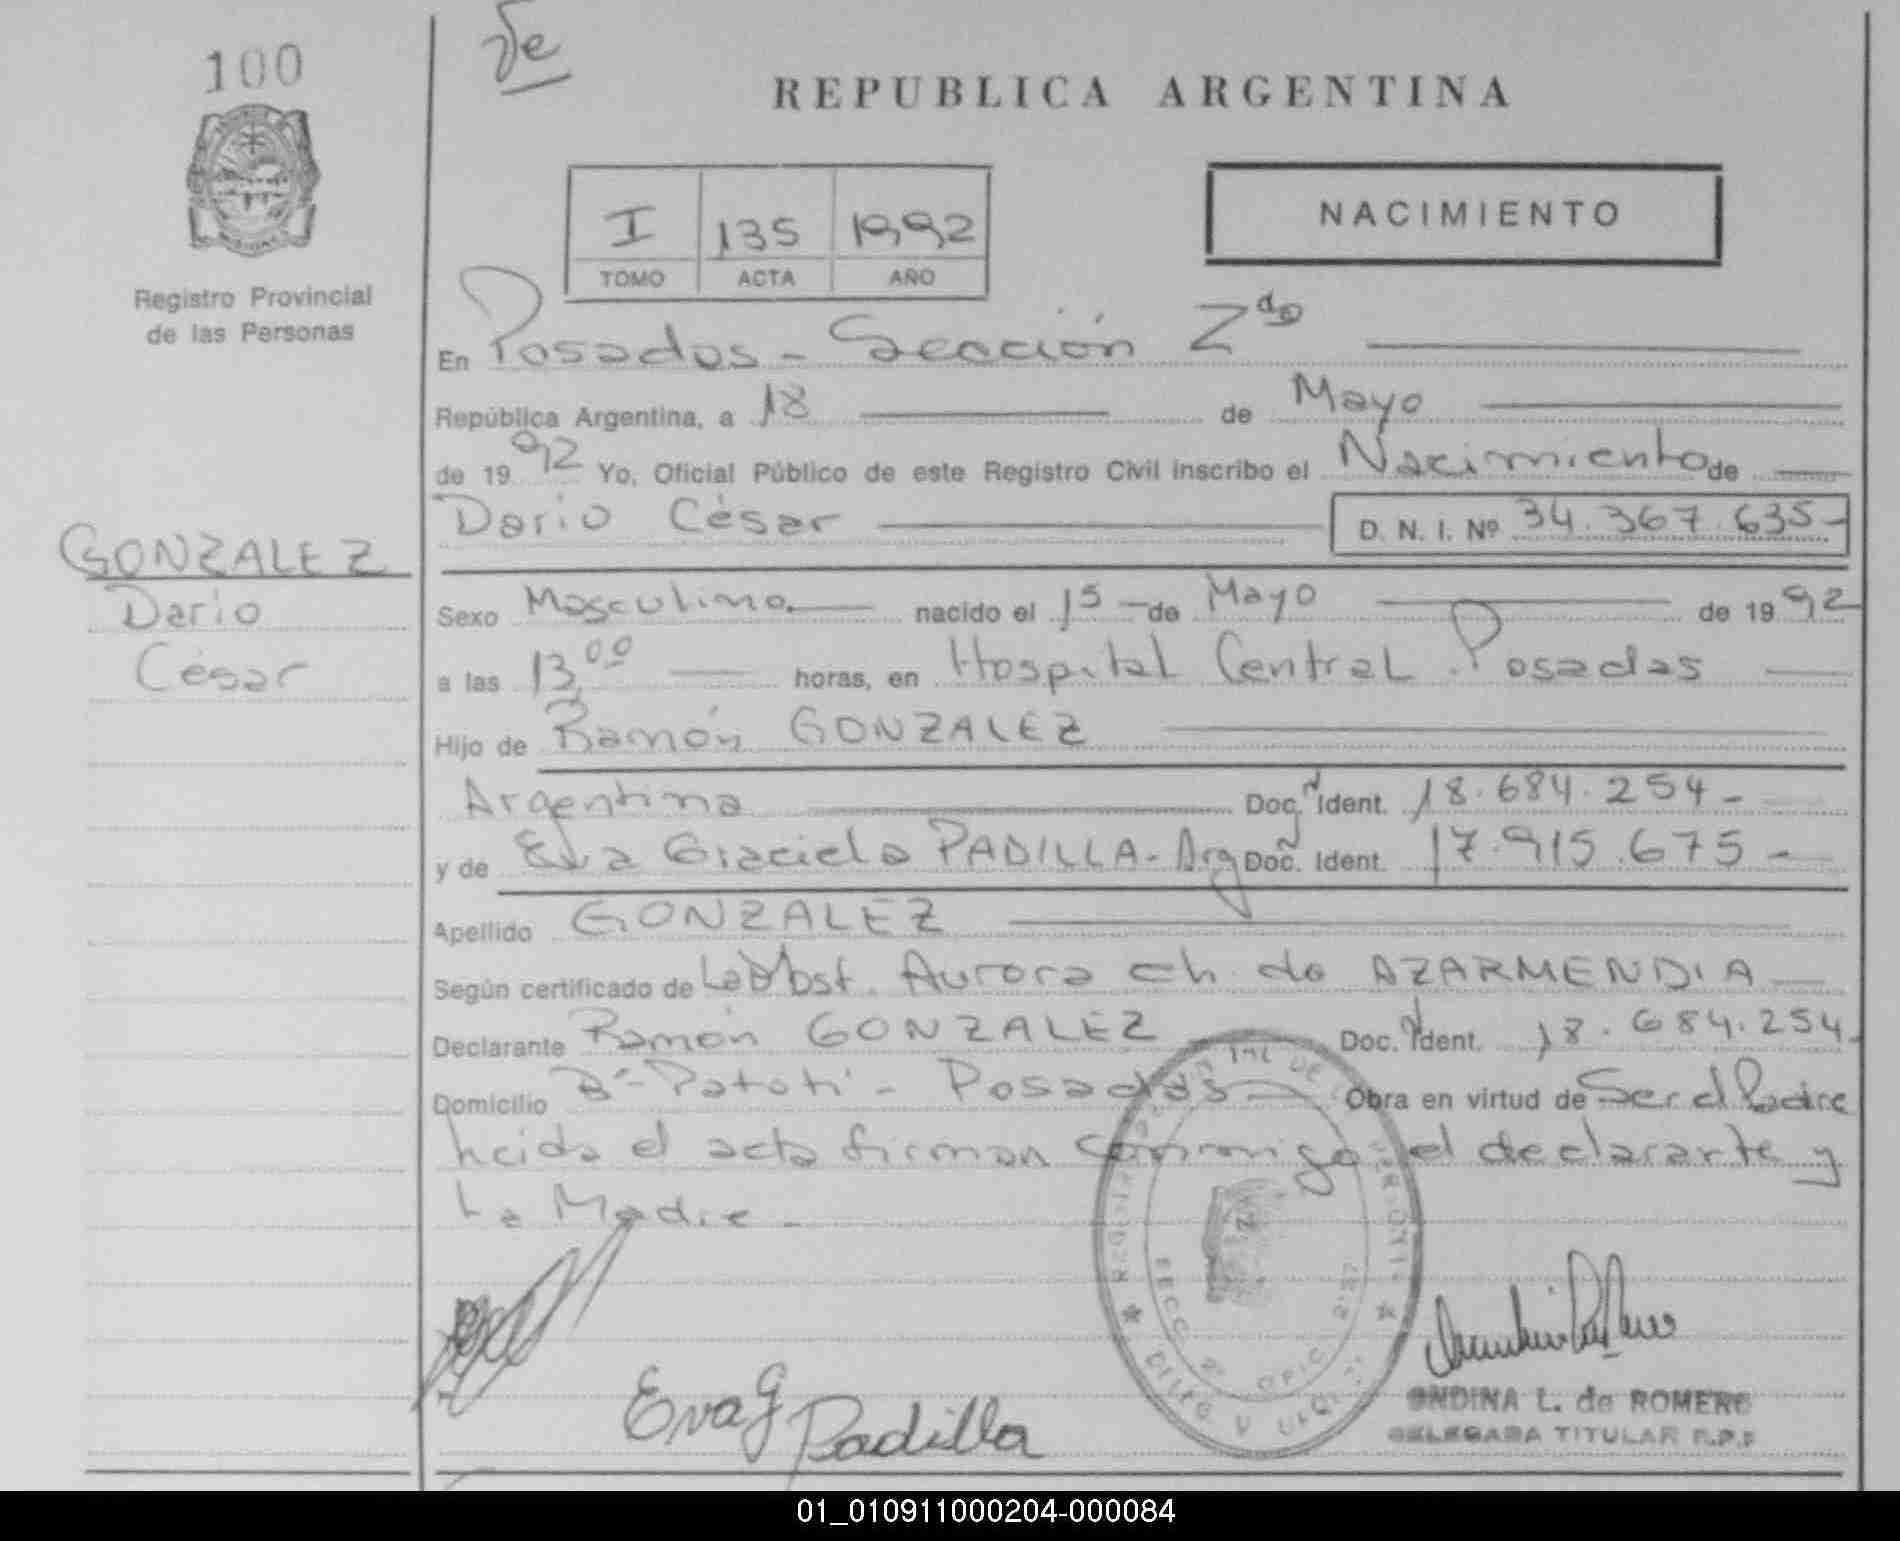 100
REPUBLICA ARGENTINA
I 135 1992
TOMO ACTA AÑO
NACIMIENTO
Registro Provincial
de las Personas
En Posadas - Sección 2da
República Argentina, a 18 de Mayo
de 1992 Yo, Oficial Público de este Registro Civil inscribo el Nacimiento de
Dario César D. N. I. Nº 34.367.635-
GONZALEZ
Dario
César
Sexo Masculino. nacido el 15 - de Mayo de 1992
a las 13,00 horas, en Hospital Central. Posadas
Hijo de Ramón GONZALEZ
Argentina Doc. Ident. 18.684.254-
y de Eva Graciela PADILLA- Arg Doc. Ident. 17.915.675-
Apellido GONZALEZ
Según certificado de La Obst. Aurora ch. de AZARMENDIA
Declarante Ramón GONZALEZ Doc. Ident. 18.684.254-
Domicilio Bº Patotí - Posadas Obra en virtud de Ser el Padre
Leida el acta firman conmigo el declarante y
La Madre -
Eva G Padilla
ONDINA L. de ROMERO
DELEGADA TITULAR R.P.P
01_010911000204-000084